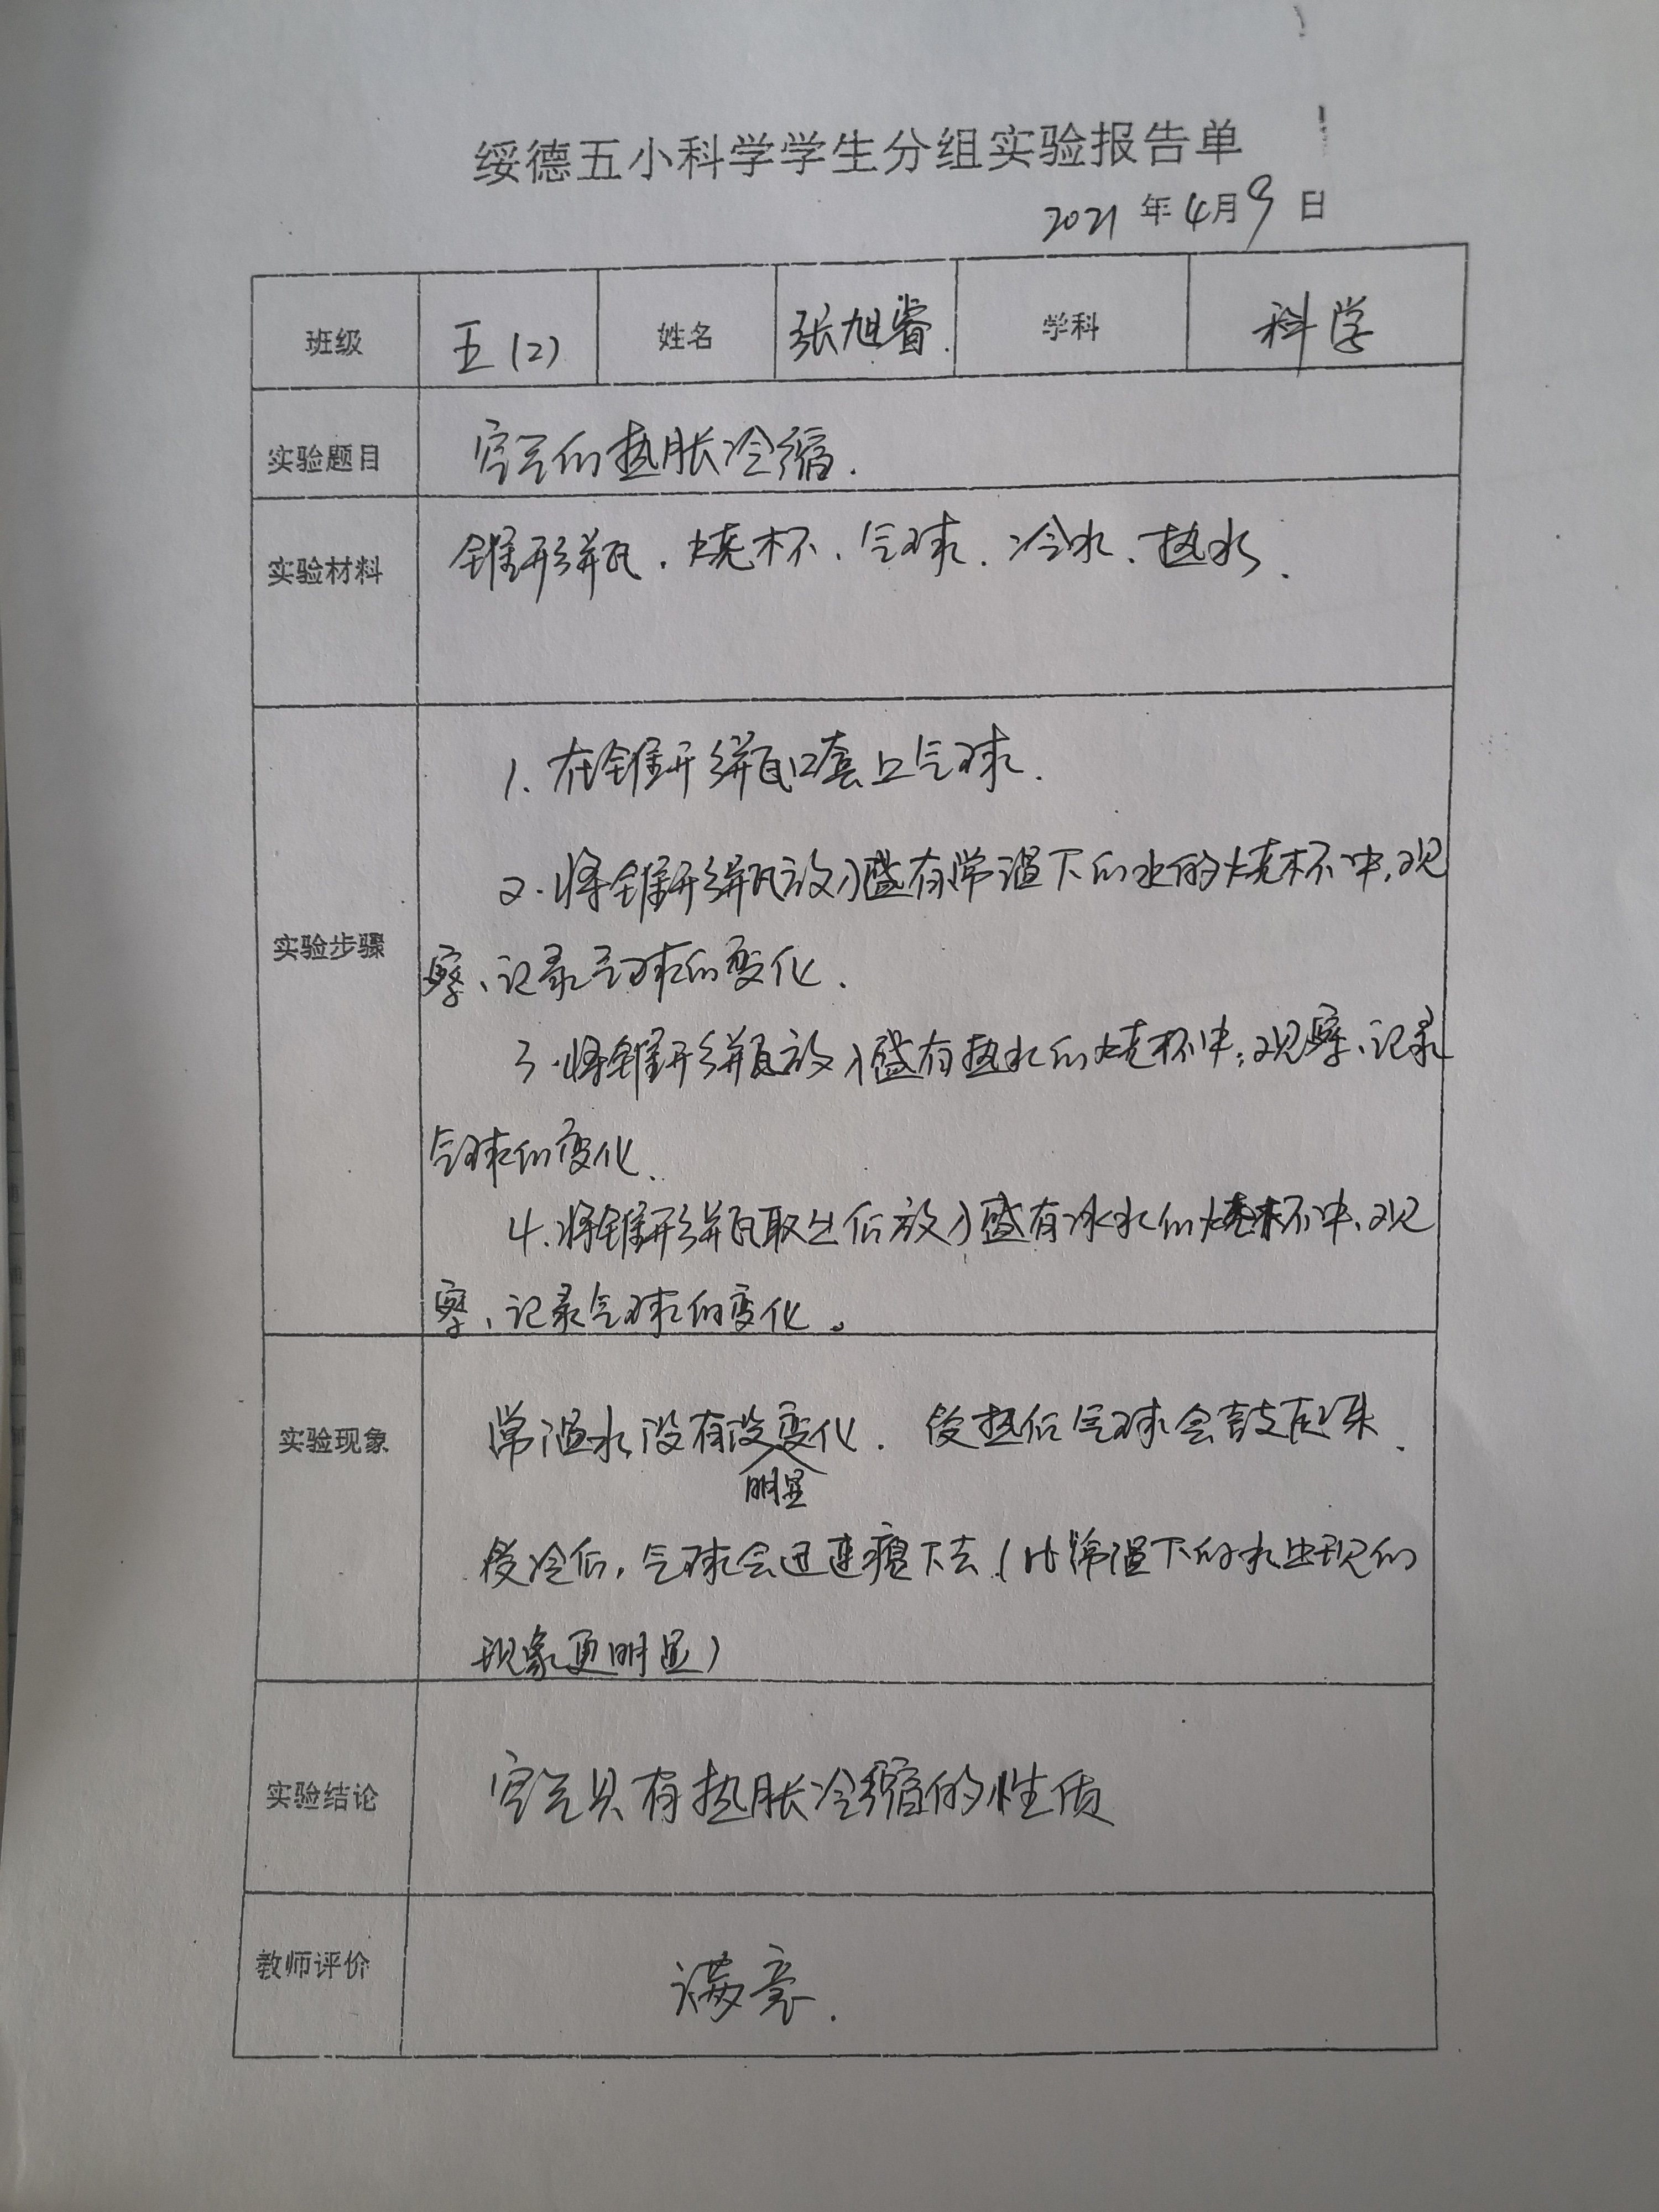 绥德五小科学学生分组实验报告单
2021 年 4月9 日
班级 五(2) 姓名 张旭睿. 学科 科学
实验题目 空气的热胀冷缩.
实验材料 锥形瓶、烧杯、气球、冷水、热水.
实验步骤
1. 在锥形瓶口套上气球.
2. 将锥形瓶放入盛有常温下的水的烧杯中,观
察、记录气球的变化.
3. 将锥形瓶放入盛有热水的烧杯中,观察、记录
气球的变化.
4. 将锥形瓶取出后放入盛有冰水的烧杯中、观
察、记录气球的变化。
实验现象 常温水没有没变化. 受热后气球会鼓起来.
明显
受冷后,气球会迅速瘪下去(比常温下的水出现的
现象更明显)
实验结论 空气具有热胀冷缩的性质
教师评价 满意.